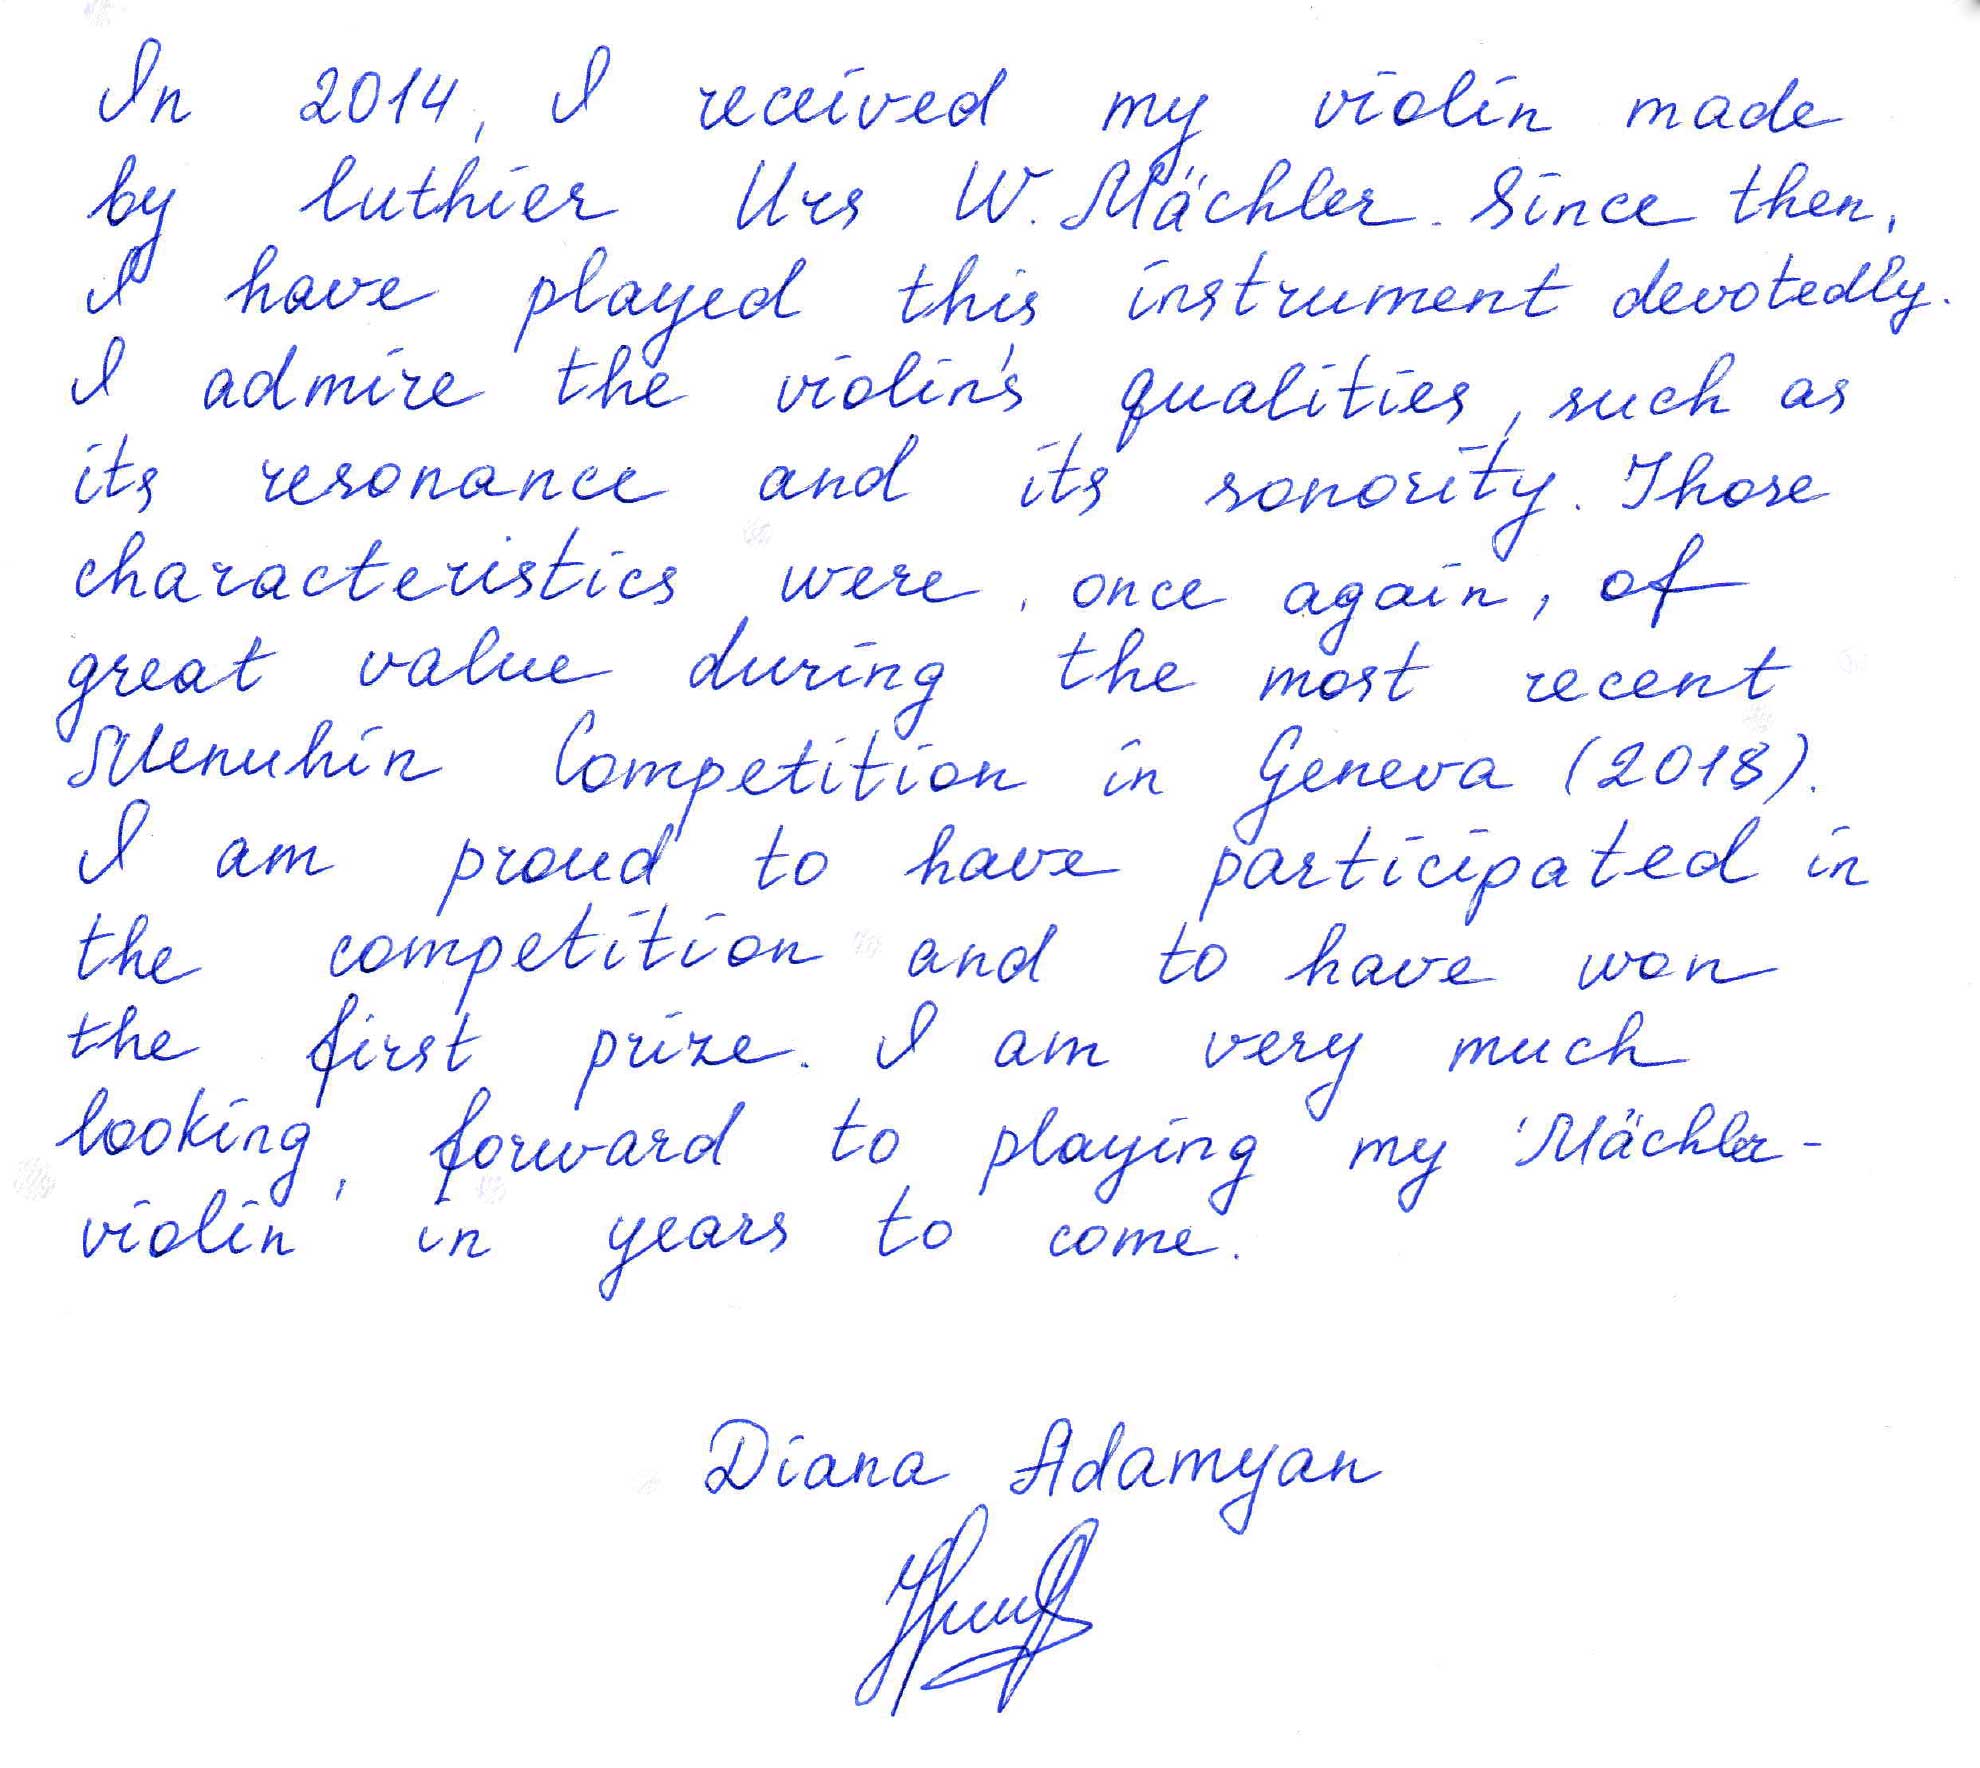 In 2014, I received my violin made
by luthier Urs W. Mächler. Since then,
I have played this instrument devotedly.
I admire the violin's qualities, such as
its resonance and its sonority. Those
characteristics were, once again, of
great value during the most recent
Menuhin Competition in Geneva (2018).
I am proud to have participated in
the competition and to have won
the first prize. I am very much
looking forward to playing my 'Mächler-
violin' in years to come.
Diana Adamyan